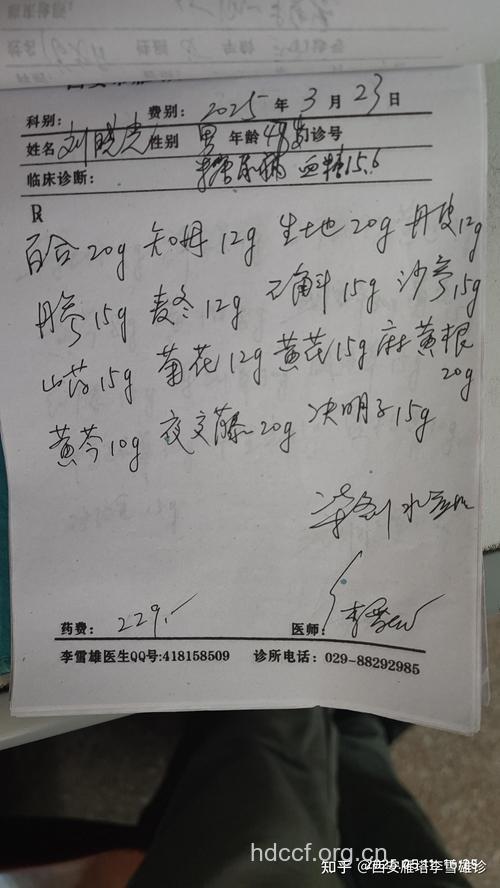 科别： 费别： 2025 年 3 月 23 日
姓名 刘晓虎 性别 男 年龄 49岁 诊号
临床诊断： 糖尿病 血糖15.6
R
百合20g 知母12g 生土地20g 丹皮12g
丹参15g 麦冬12g 石斛15g 沙参15g
山药15g 菊花12g 黄芪15g 麻黄根
20g
黄芩10g 夜交藤20g 决明子15g
水
药费： 229.- 医师： 李雪雄
李雪雄医生QQ号:418158509 诊所电话：029-88292985
hdccf.org.cn
知乎 @西安雁塔李雪雄诊